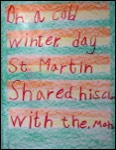 On a cold
winter day
St Martin
Shared his cu
with the. Man